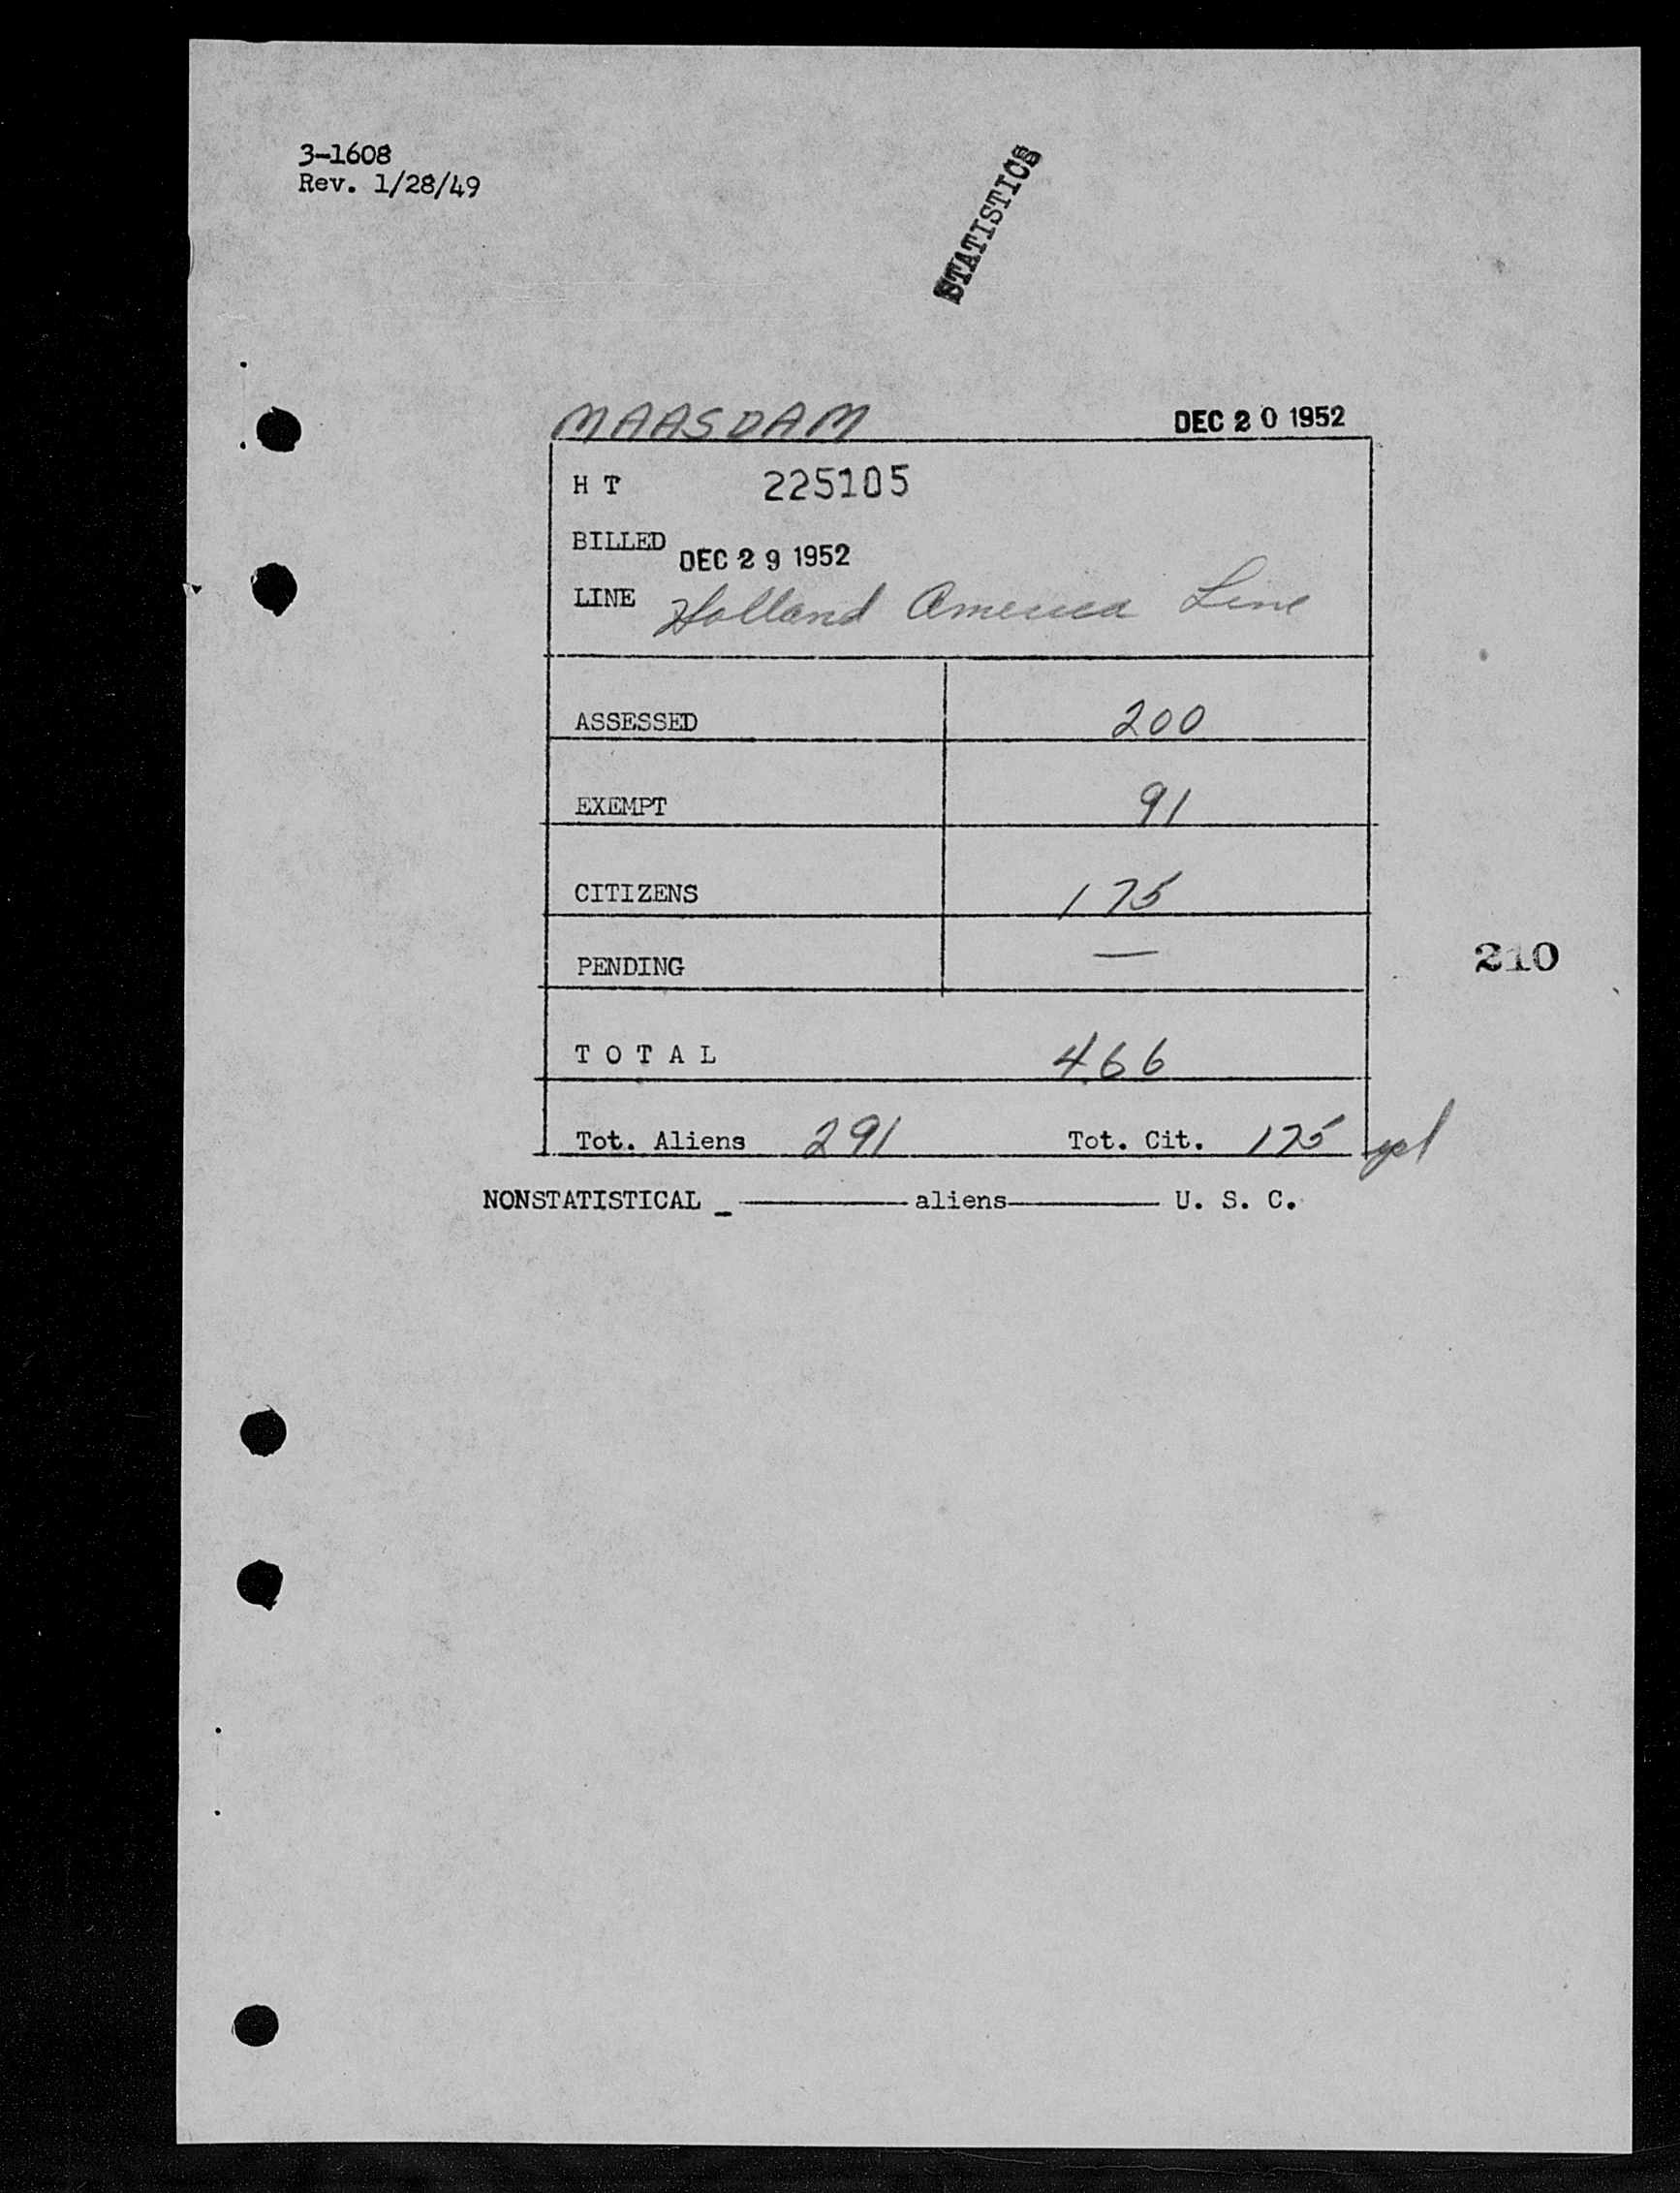 3-1608
Rev. 1/28/49
STATISTICS
MAASDAM DEC 20 1952
H T 225105
BILLED DEC 29 1952
LINE Holland America Line
ASSESSED 200
EXEMPT 91
CITIZENS 175
PENDING —
210
T O T A L 466
Tot. Aliens 291 Tot. Cit. 175
NONSTATISTICAL _ ——— aliens ——— U. S. C.